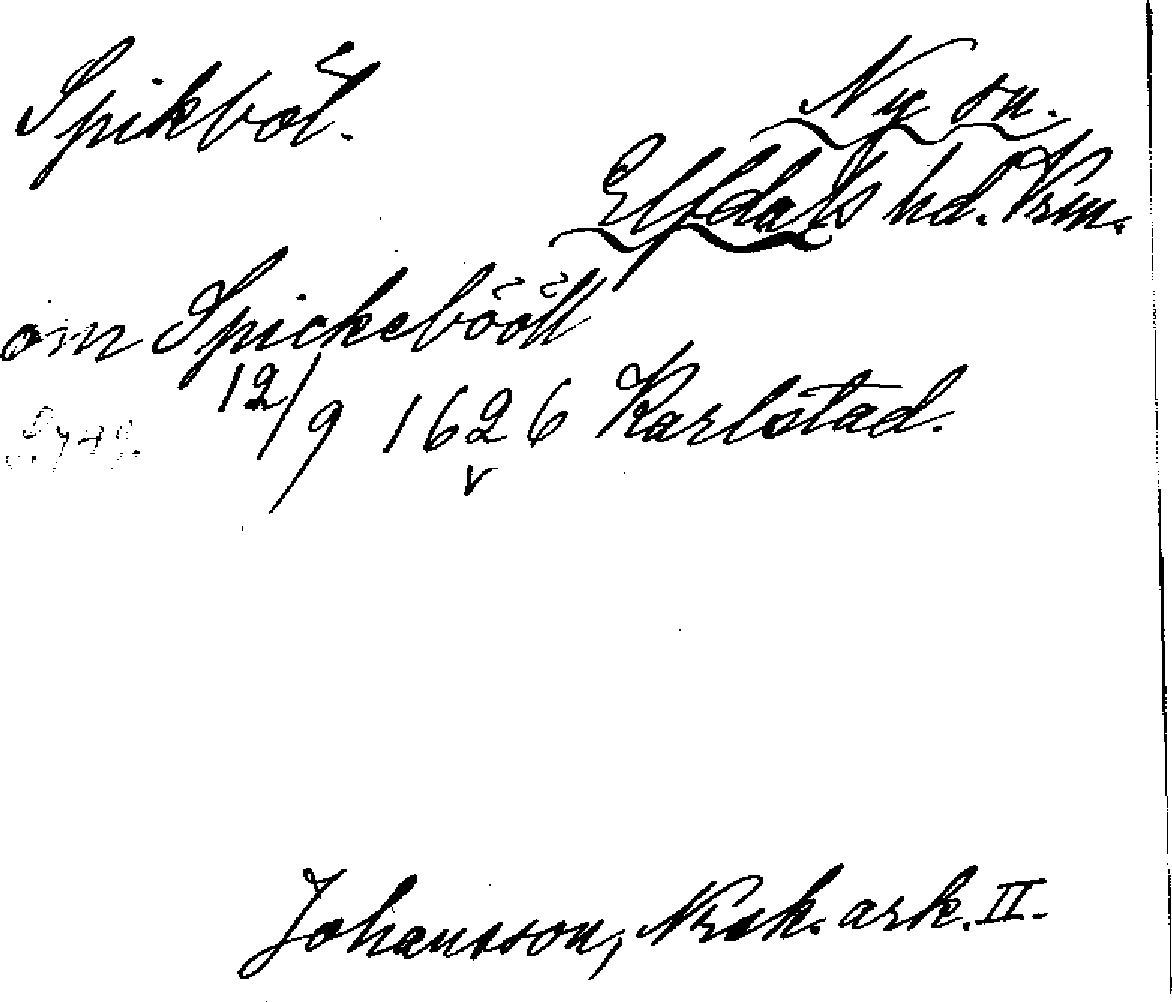 Spikböl.
Ny sn.
Elfdals hd. Vrm.
om Spickebööll
12/9 1626 Karlstad.
v
Johansson, ark. II.